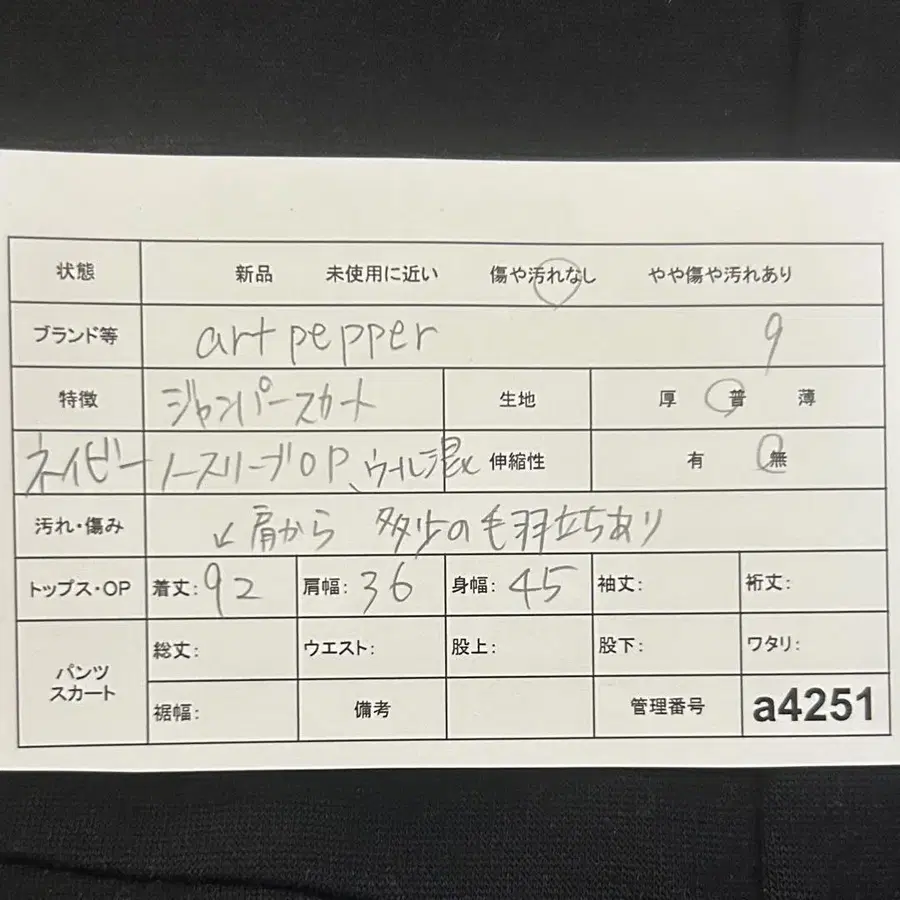 状態 新品 未使用に近い 傷や汚れなし やや傷や汚れあり
ブランド等 art pepper 9
特徴 ジャンパースカート 生地 厚 普 薄
ネイビー ノースリーブOP、ウール混 伸縮性 有 無
汚れ・傷み ↙肩から 多少の毛羽立ちあり
トップス・OP 着丈:92 肩幅:36 身幅:45 袖丈: 裄丈:
パンツ スカート 総丈: ウエスト: 股上: 股下: ワタリ:
裾幅: 備考 管理番号 a4251